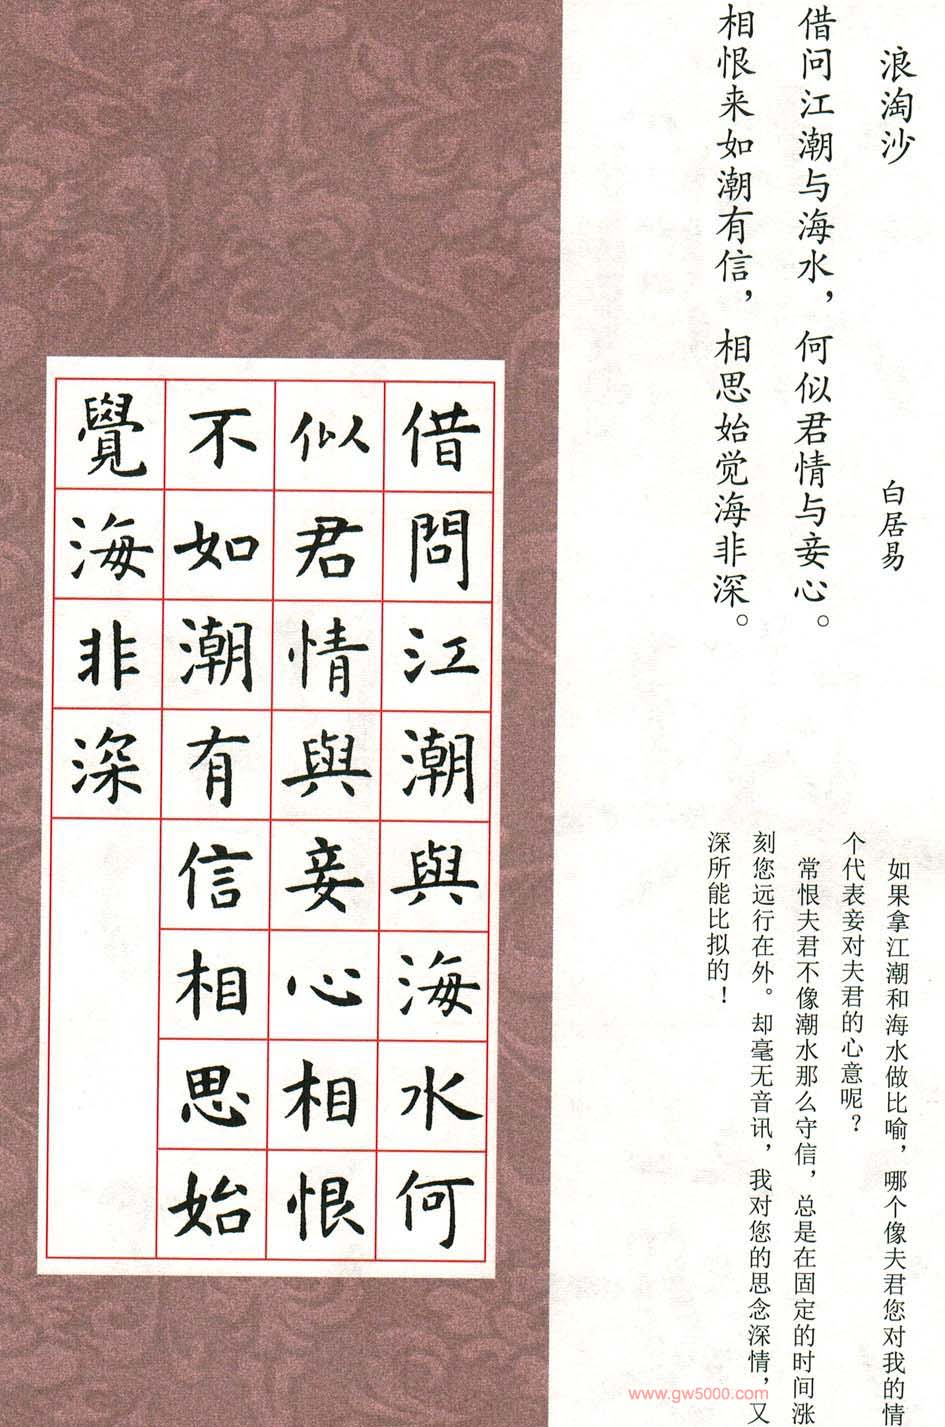 浪淘沙
白居易
借问江潮与海水，何似君情与妾心。
相恨来如潮有信，相思始觉海非深。
如果拿江潮和海水做比喻，哪个像夫君您对我的情
个代表妾对夫君的心意呢？
常恨夫君不像潮水那么守信，总是在固定的时间涨
刻您远行在外。却毫无音讯，我对您的思念深情，又
深所能比拟的！
借問江潮與海水何
似君情與妾心相恨
不如潮有信相思始
覺海非深
www.gw5000.com